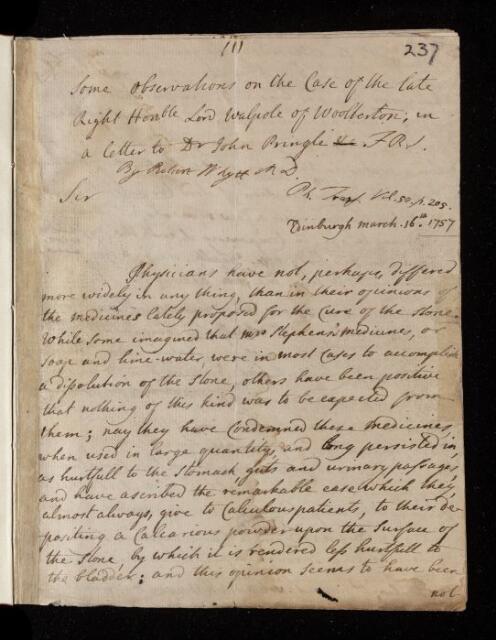 (1)
237
Some observations on the Case of the late
Right Honble Lord Walpole of Woolterton; in
a letter to Dr John Pringle F.R.S.
By Robert Whytt M.D.
Sir
Ph. Trans. Vol. 50. p. 205.
Edinburgh march. 16th. 1757
Physicians have not, perhaps, differed
more widely in any thing, than in their opinions of
the medicines lately proposed for the cure of the Stone.
While some imagined that Mrs Stephens's medicines, or
soap and lime-water were in most cases to accomplish
a dissolution of the Stone, others have been positive
that nothing of this kind was to be expected from
them; nay they have Condemned these medicines
when used in large quantity, and long persisted in,
as hurtfull to the stomach, guts and urinary passages
and have ascribed the remarkable ease which they,
almost always, give to Calculous patients, to their de-
positing a Calcarious powder upon the Surface of
the Stone by which it is rendered less hurtfull to
the bladder: and this opinion seems to have been
not